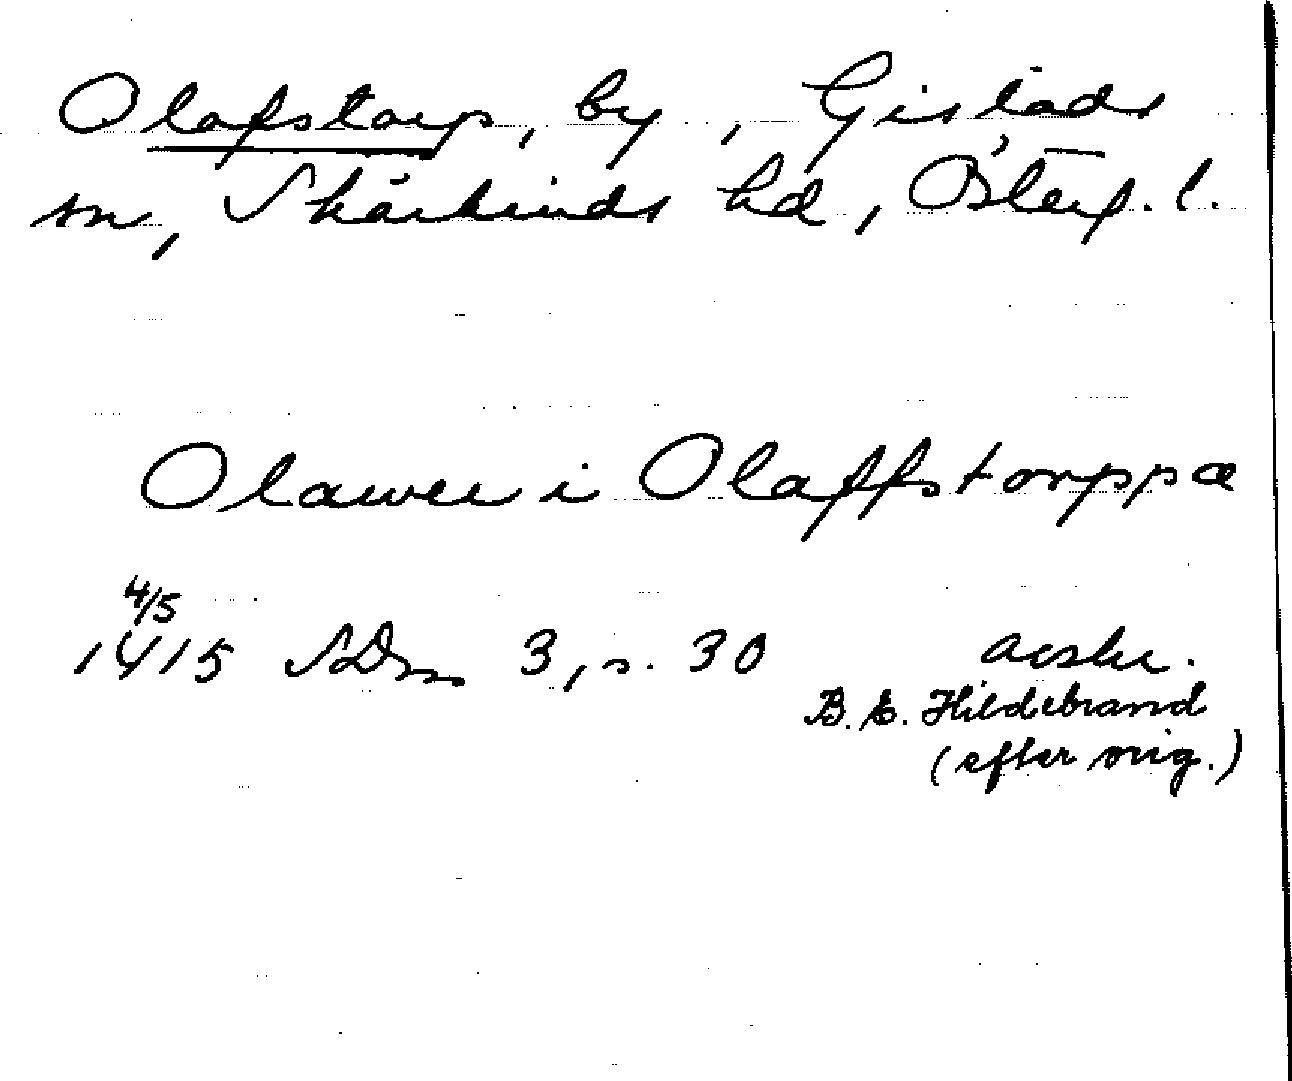 Olofstorp, by, Gistads
sn, Skärkinds hd, Österg. l.
Olawer i Olaffstorppæ
4/5
1415 SDns 3, s. 30 avskr.
B. E. Hildebrand
(efter orig.)